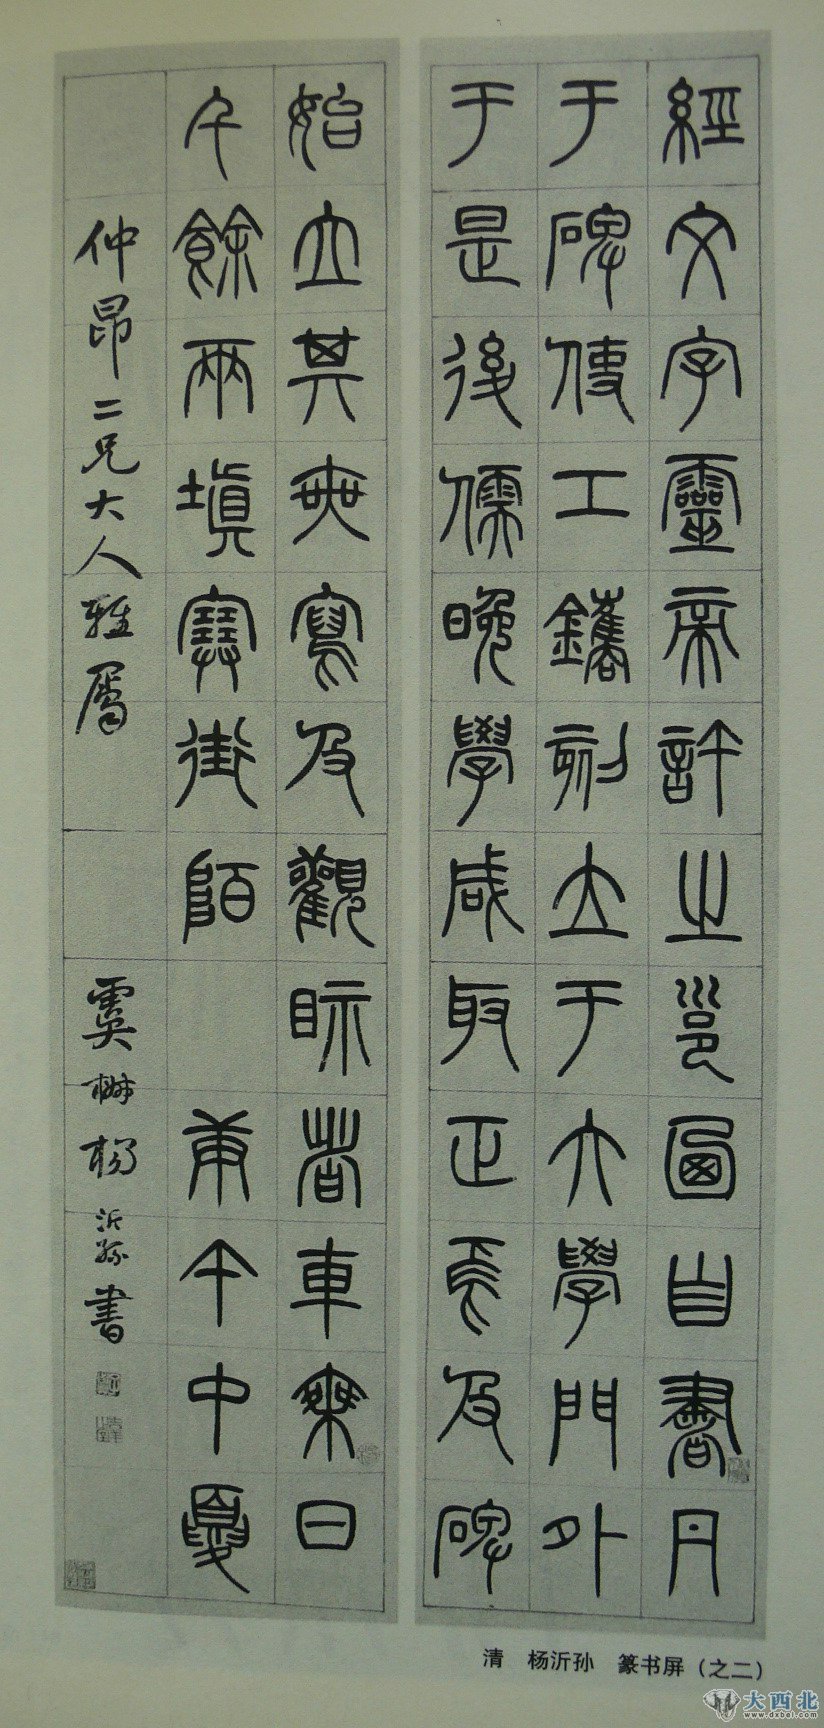 經文字靈帝許之邕自書丹
于碑使工鐫刻立于大學門外
于是後儒晚學咸取正焉及碑
始立其寫及觀眎者車乘日
千餘兩填塞街陌 庚午中夏
仲昂二兄大人雅屬 虞楊沂孫書
清 杨沂孙 篆书屏（之二）
大西北
www.dxbei.com